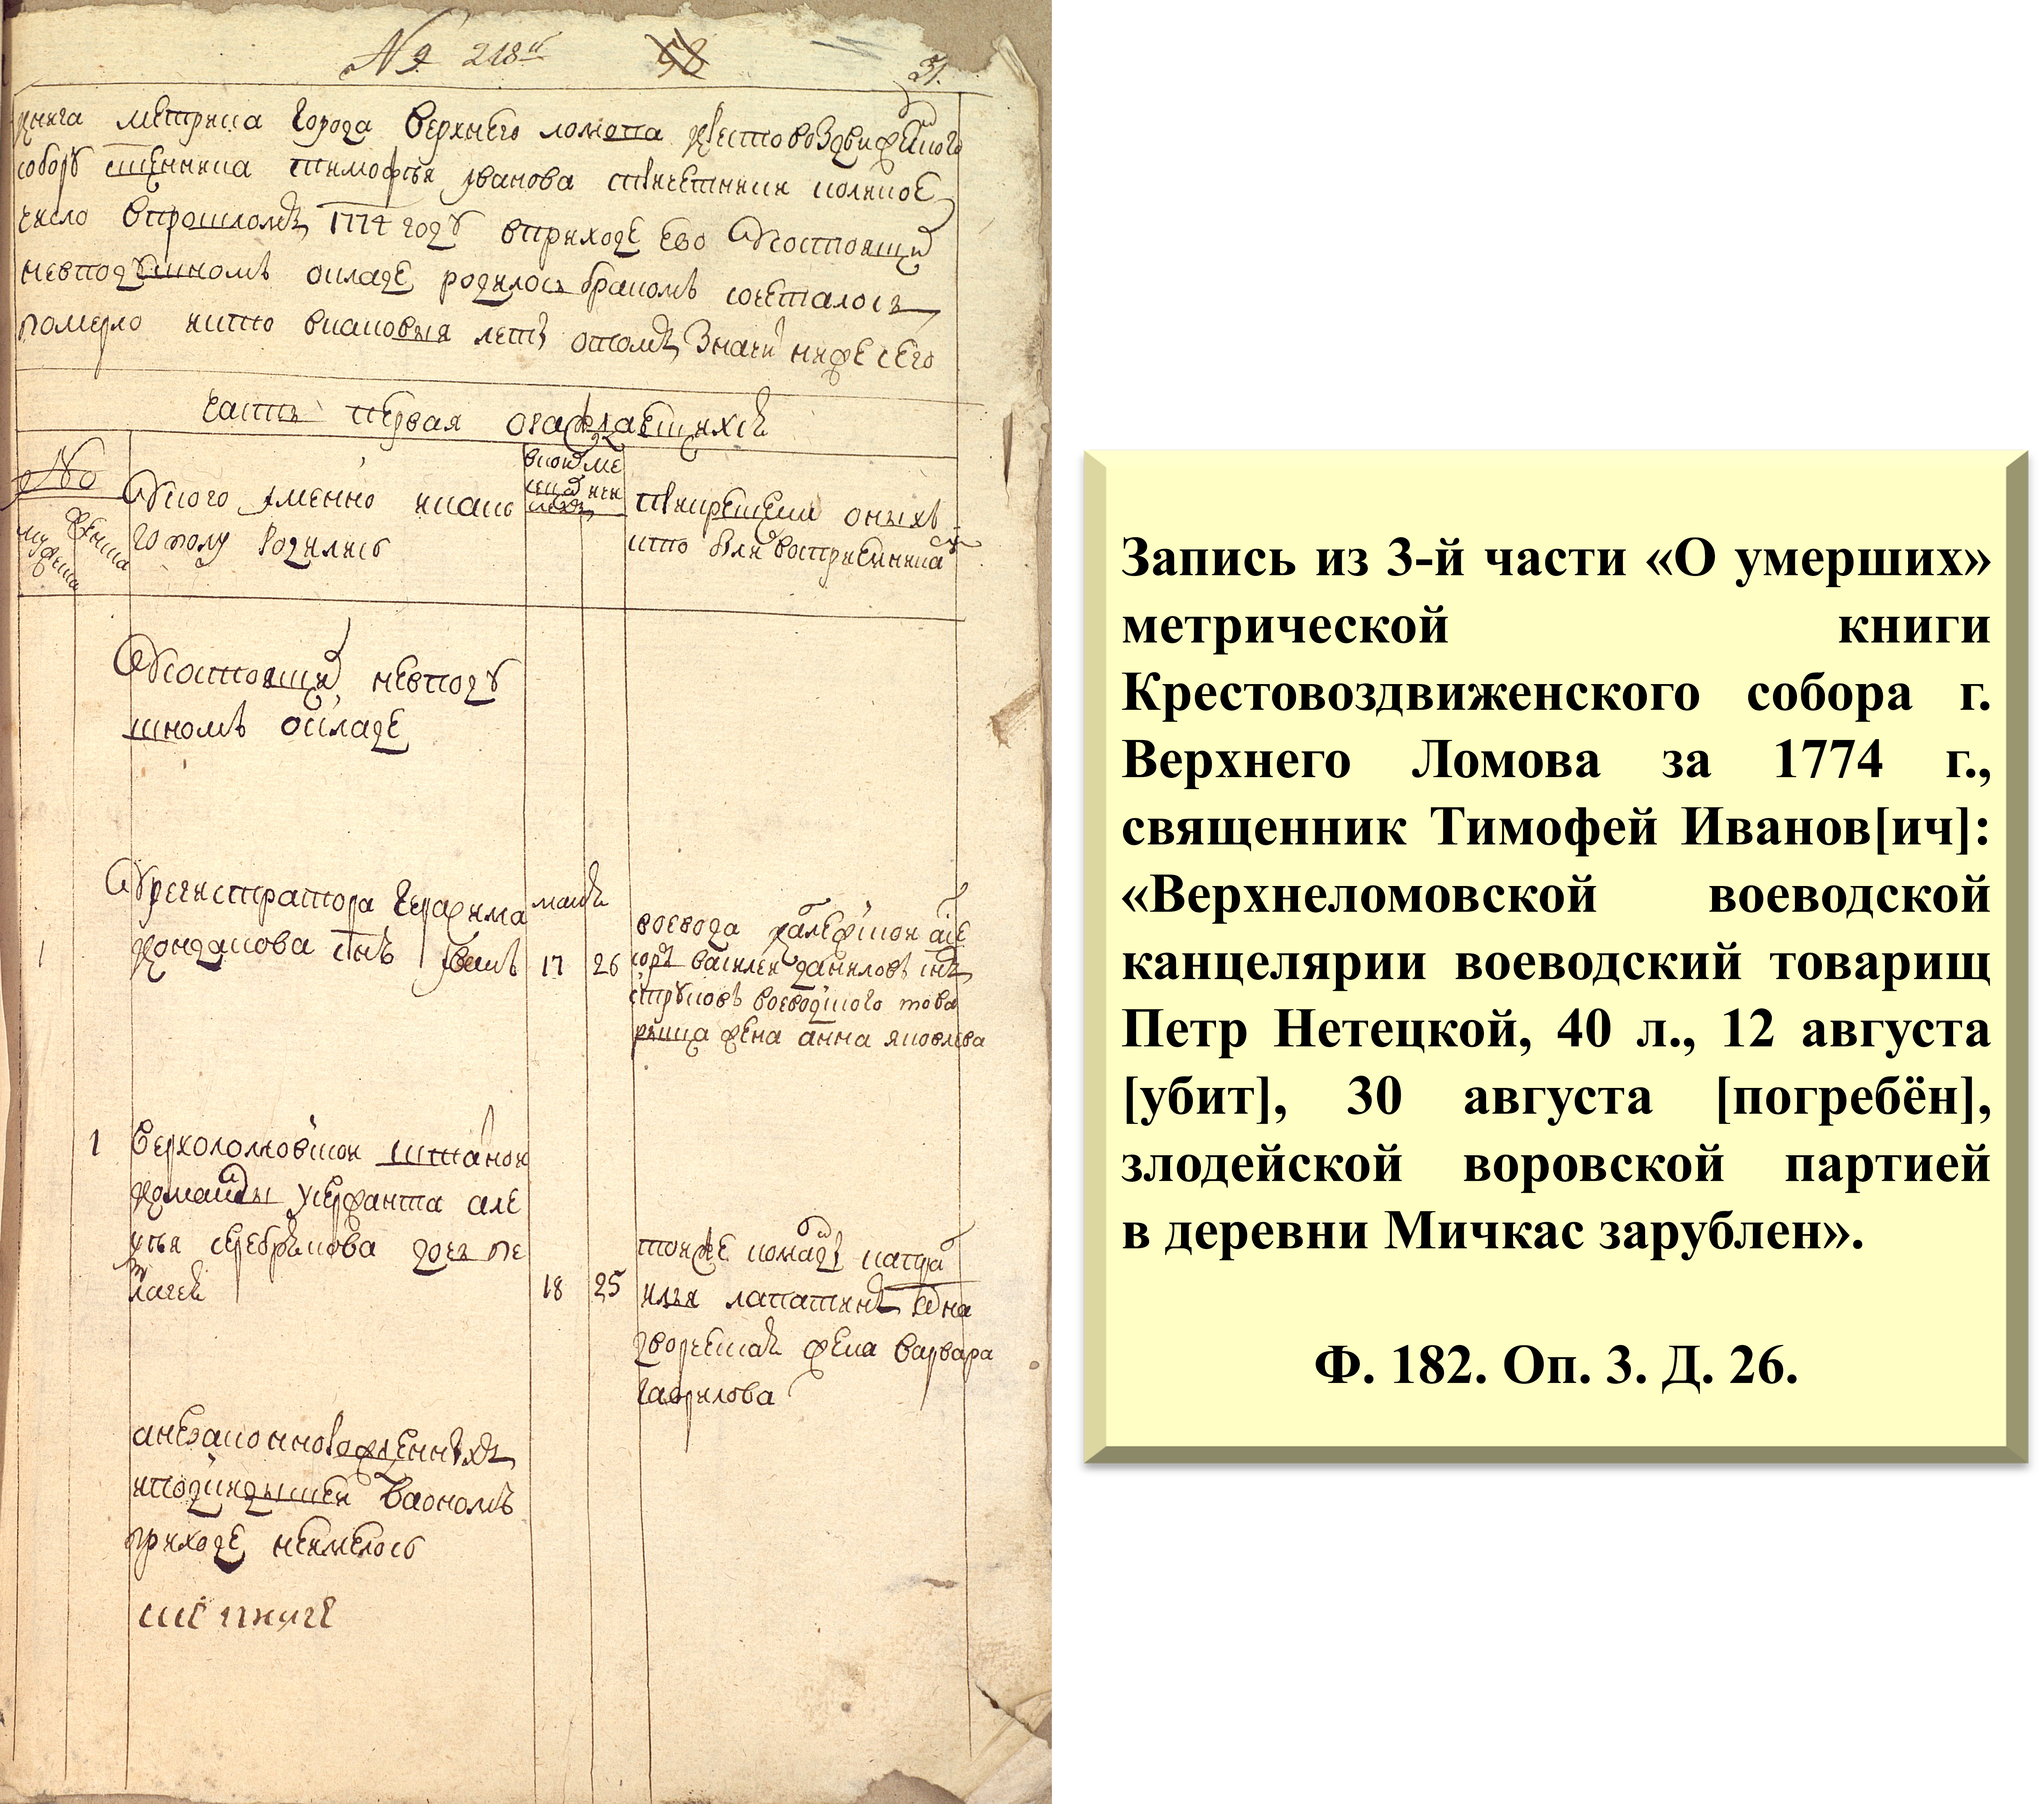 № 218й 58
31.
книга метрика города верхнего ломова крестовоздвиженского
собору сщенника тимофея иванова сколико
число в прошломъ 1774 году в приходе ево у состоящих
не в подушномъ окладе родилось бракомъ сочеталось
померло и кто в каковыя летъ о томъ значит ниже сего
часть первая о раждающихся
№
мужеска
женска
У кого имянно и како
го полу родились
в коих ме
и крещении оных
кто были восприемники
У состоящих не в поду
шномъ окладе
1
У регистратора герасима
кондакова снъ иванъ
маия
17 26
воевода коллежской асе
соръ василей даниловъ снъ
струковъ воеводского това
рища жена анна яковлева
1
верхоломовской штатной
команды сержанта але
ксея серебрякова дочь пе
лагея
18 25
той же команды капра
илья лапатинъ
жена варвара
гаврилова
а незаконнорожденныхъ
и подкидышей в оном
приходе не имелось
Запись из 3-й части «О умерших»
метрической книги
Крестовоздвиженского собора г.
Верхнего Ломова за 1774 г.,
священник Тимофей Иванов[ич]:
«Верхнеломовской воеводской
канцелярии воеводский товарищ
Петр Нетецкой, 40 л., 12 августа
[убит], 30 августа [погребён],
злодейской воровской партией
в деревни Мичкас зарублен».
Ф. 182. Оп. 3. Д. 26.